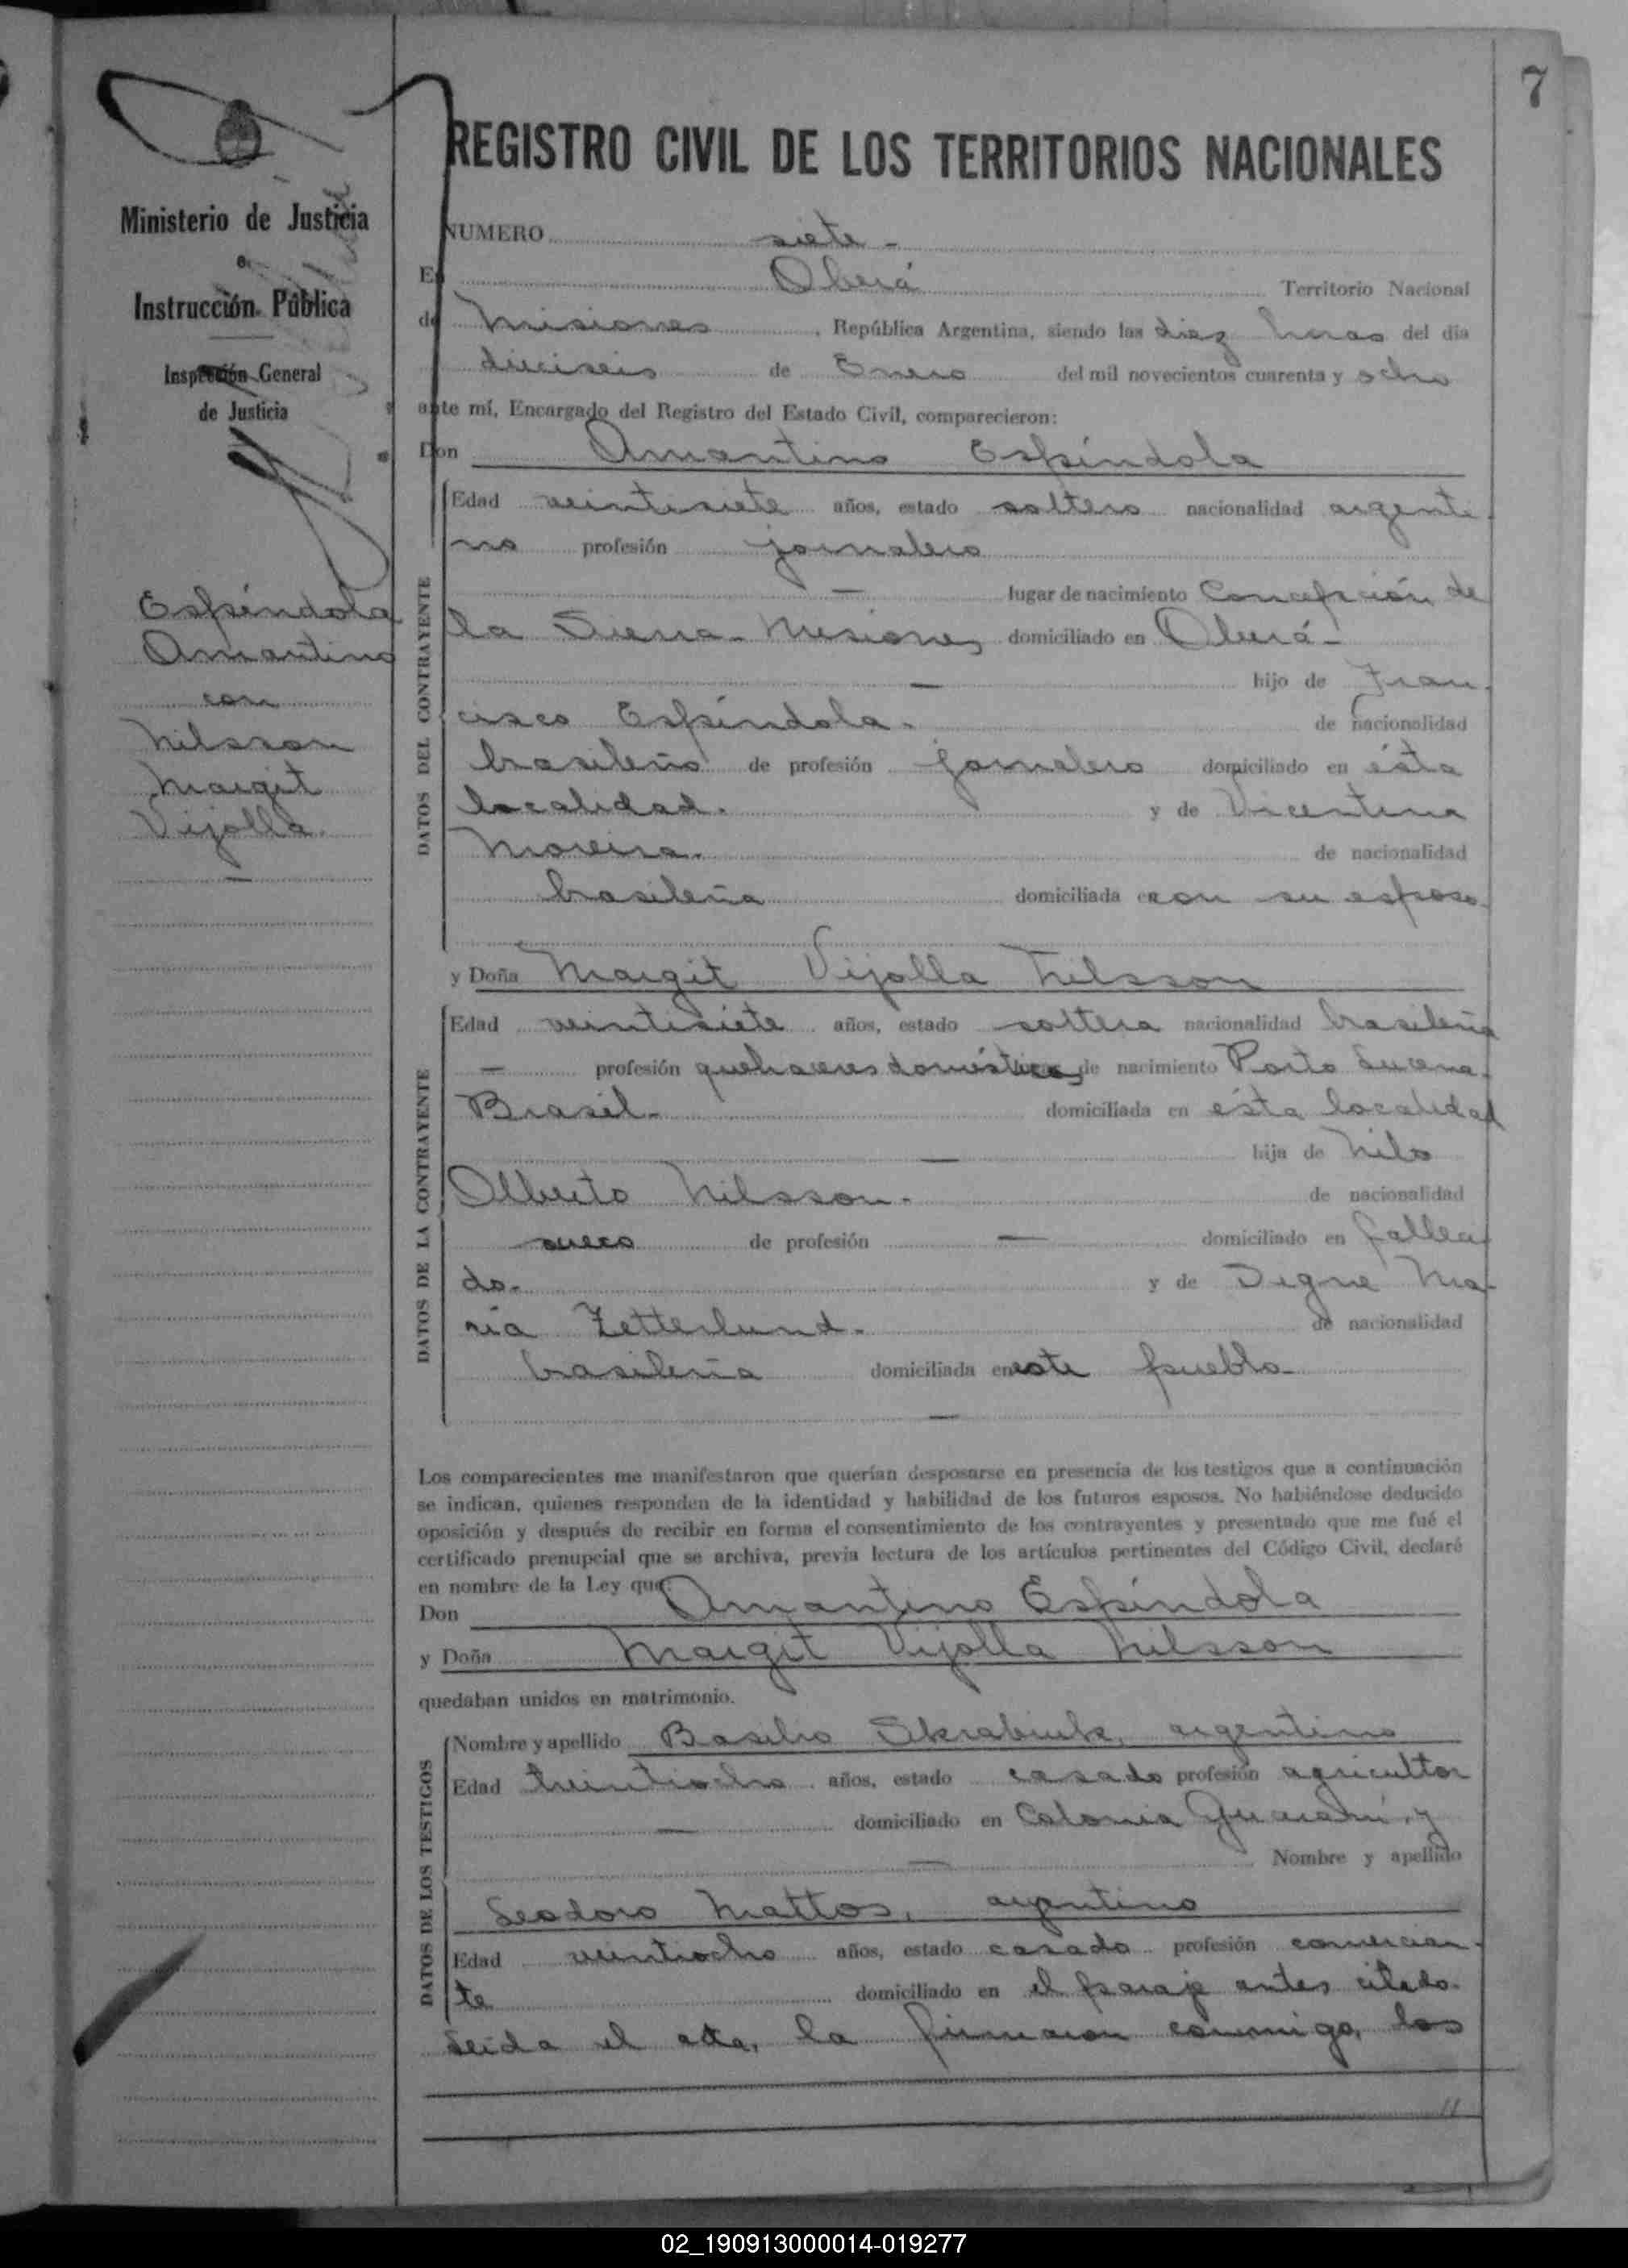 7
REGISTRO CIVIL DE LOS TERRITORIOS NACIONALES
Ministerio de Justicia
e
Instrucción Pública
Inspección General
de Justicia
Espíndola
Amantino
con
Nilsson
Margit
Vijolla.
NUMERO siete -
En Oberá Territorio Nacional
de Misiones, República Argentina, siendo las diez horas del día
dieciseis de Enero del mil novecientos cuarenta y ocho
ante mí, Encargado del Registro del Estado Civil, comparecieron:
Don Amantino Espíndola
DATOS DEL CONTRAYENTE
Edad veintisiete años, estado soltero nacionalidad argenti-
no profesión jornalero
— lugar de nacimiento Concepción de
la Sierra - Misiones domiciliado en Oberá -
— hijo de Fran-
cisco Espíndola. de nacionalidad
brasileño de profesión jornalero domiciliado en ésta
localidad. y de Vicentina
Moreira. de nacionalidad
brasileña domiciliada en con su esposo.
y Doña Margit Vijolla Nilsson
DATOS DE LA CONTRAYENTE
Edad veintisiete años, estado soltera nacionalidad brasileña
— profesión quehaceres domésticos de nacimiento Porto Lucena.
Brasil. domiciliada en ésta localidad
— hija de Nils
Alberto Nilsson. de nacionalidad
sueco de profesión — domiciliado en falleci
do. y de Signe Ma-
ría Zetterlund. de nacionalidad
brasileña domiciliada en este pueblo.
—
Los comparecientes me manifestaron que querían desposarse en presencia de los testigos que a continuación
se indican, quienes responden de la identidad y habilidad de los futuros esposos. No habiéndose deducido
oposición y después de recibir en forma el consentimiento de los contrayentes y presentado que me fué el
certificado prenupcial que se archiva, previa lectura de los artículos pertinentes del Código Civil, declaré
en nombre de la Ley que:
Don Amantino Espíndola
y Doña Margit Vijolla Nilsson
quedaban unidos en matrimonio.
DATOS DE LOS TESTIGOS
Nombre y apellido Basilio Skrabiuk, argentino
Edad treintiocho años, estado casado profesión agricultor
— domiciliado en Colonia Guaraní, y
— Nombre y apellido
Leodoro Mattos, argentino
Edad veintiocho años, estado casado profesión comercian-
te domiciliado en el paraje antes citado.
Leida el acta, la firmaron conmigo, los
//
02_190913000014-019277